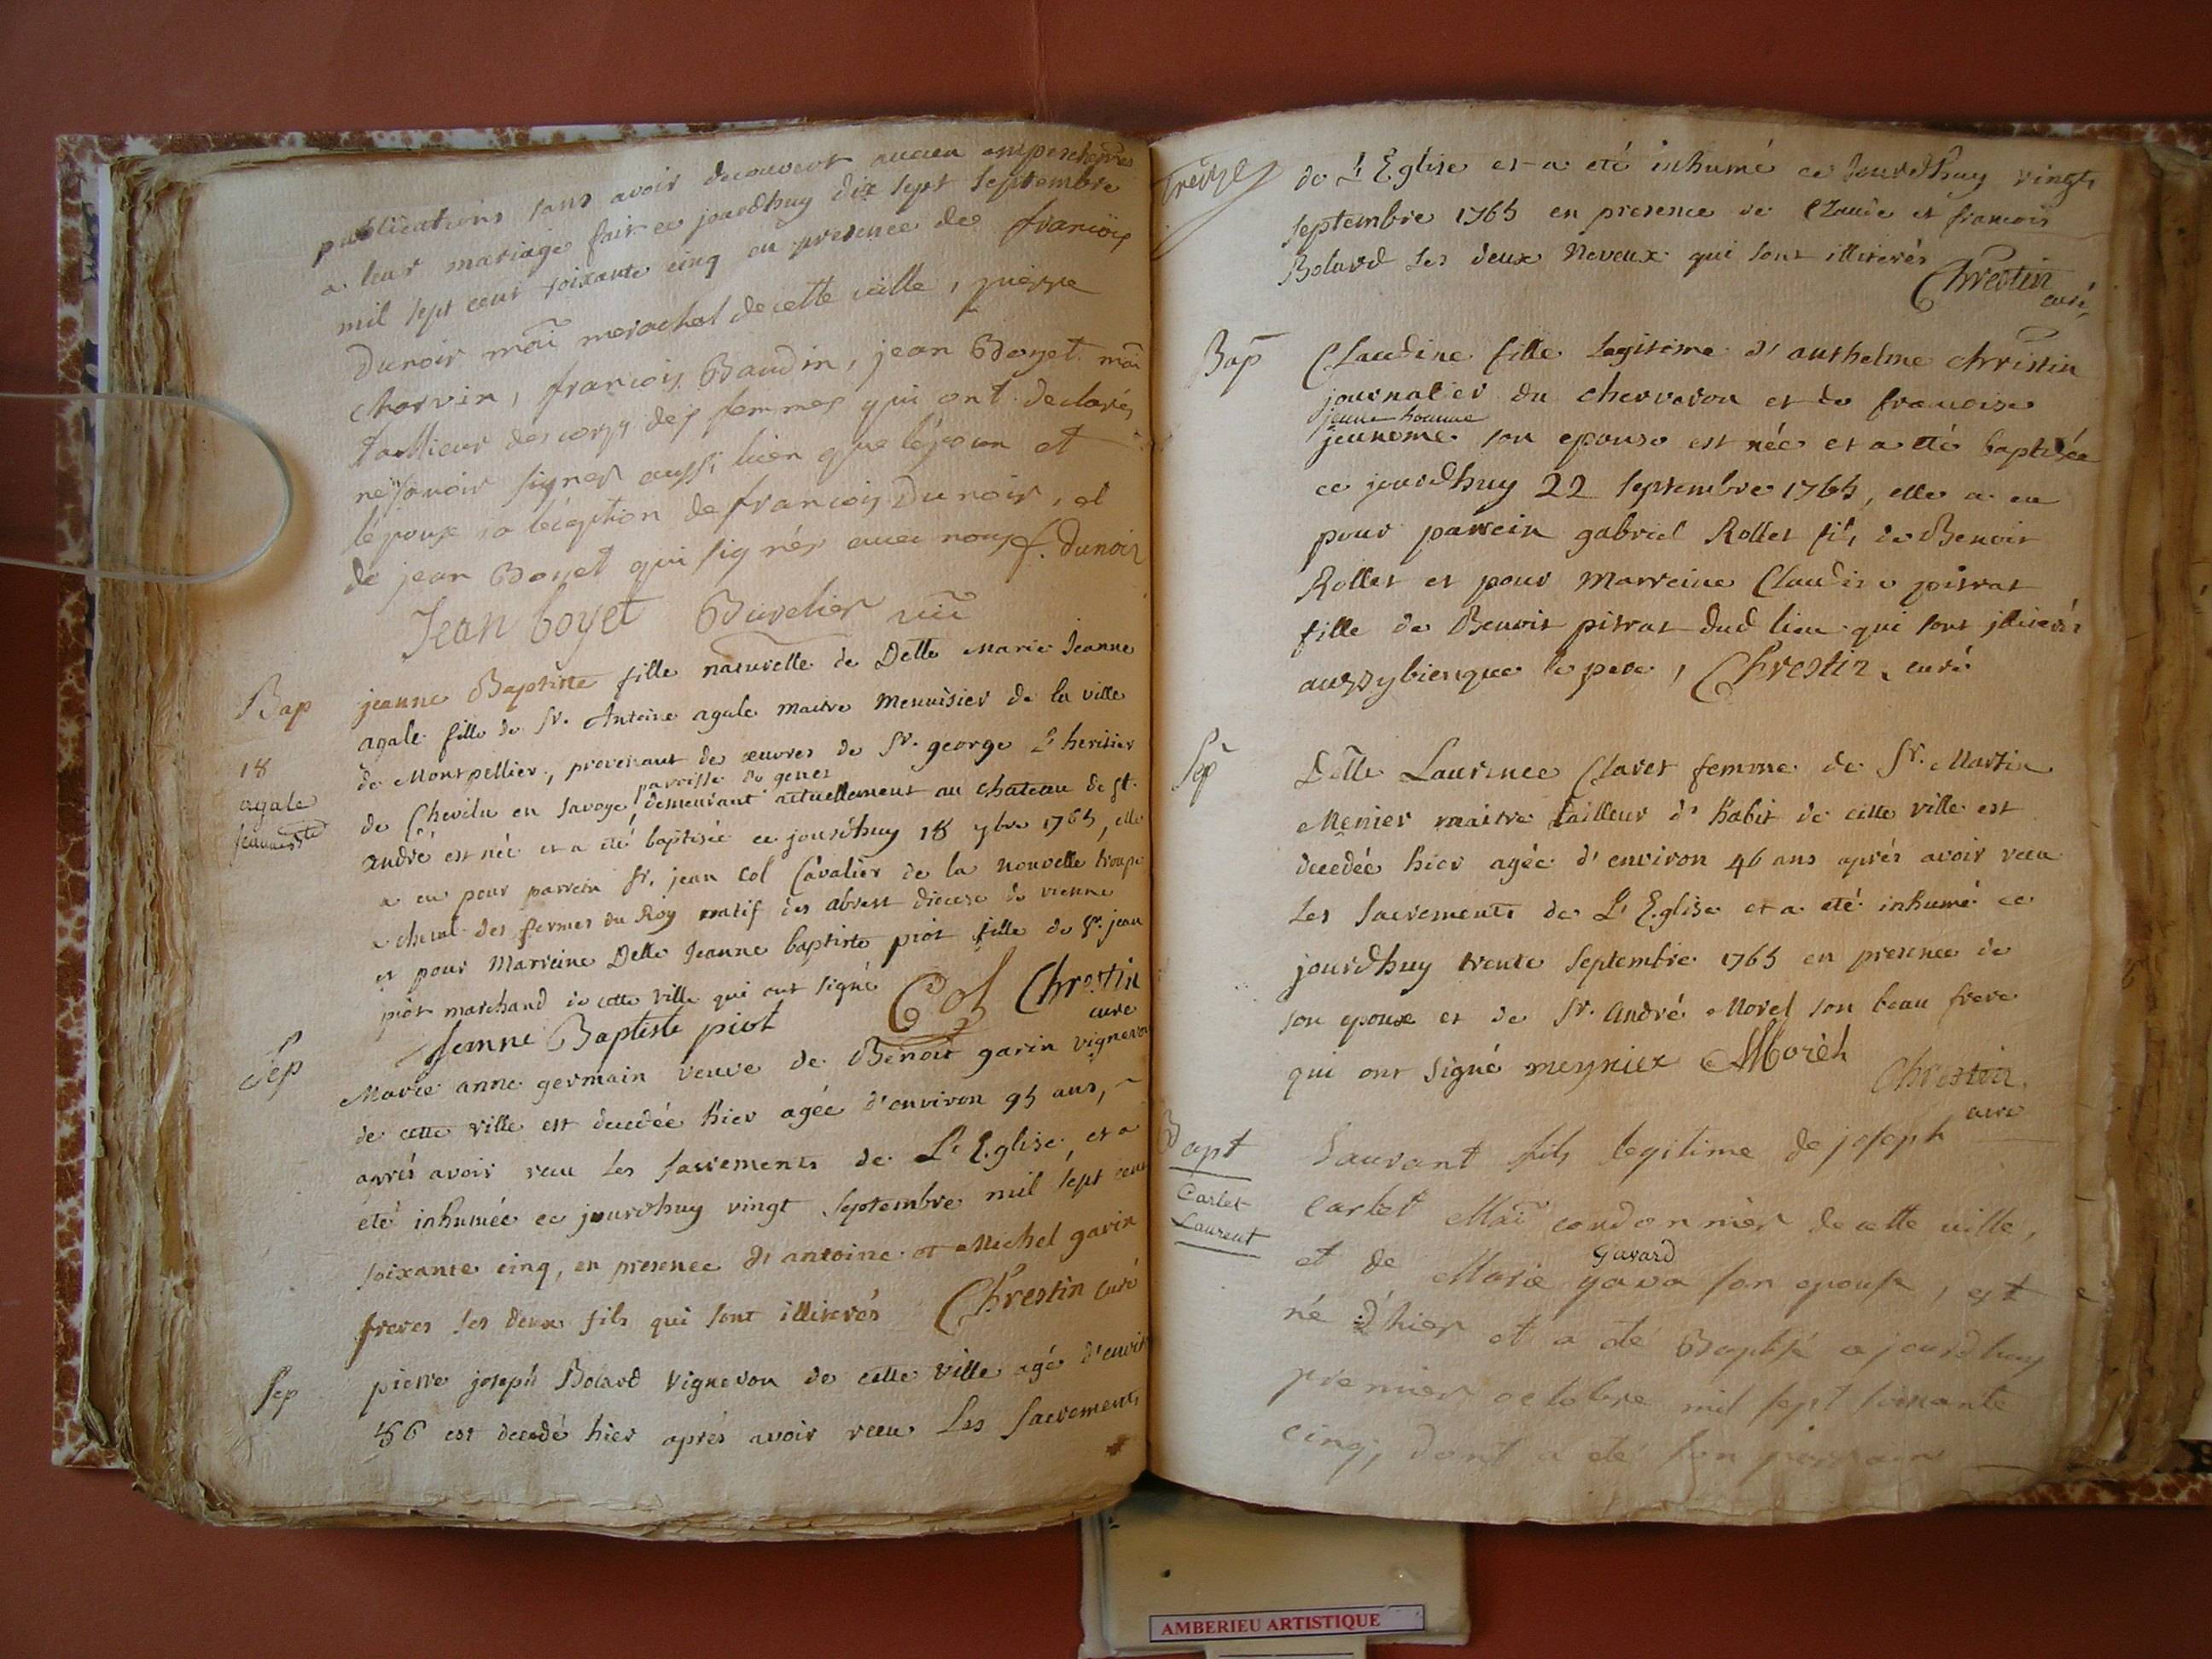 publications sans avoir decouvert aucun
a leur mariage fait ce jourdhuy dix sept septembre
mil sept cent soixante cinq en presence de françois
Dunoir marechal de cette ville, pierre
charvin, francois Baudin, jean Boyet
tallieur des corps des femmes qui ont declarés
ne savoir signer aussi bien que
de francois Dunoir, et
de jean Boyet qui signés avec nous f. dunoir
Jean boyet Buvelier vic
Bap
18
agale
jeanne Baptiste fille naturelle de Delle Marie Jeanne
agale fille de Sr. Antoine agale maitre Menuisier de la ville
de Montpellier, provenant des œuvres de Sr. george L'heritier
de Chevilu en Savoye, parroisse de genes demeurant actuellement au chateau de St.
andré est née et a eté baptisée ce jourd'huy 18 7bre 1765, elle
a eu pour parrein Sr. jean Col Cavalier de la nouvelle troupe
a cheval des fermes du Roy natif des abrest diocese de vienne
et pour Marreine Delle Jeanne baptiste piot fille de Sr. jean
piot marchand de cette ville qui ont signé Col Chrestin
Jeanne Baptiste piot curé
Sep
Marie anne germain veuve de Benoit garin vigneron
de cette ville est decedée hier agée d'environ 95 ans,
après avoir reçu les sacrements de L'Eglise et a
eté inhumée ce jourdhuy vingt septembre mil sept cent
soixante cinq, en presence d'antoine et Michel garin
freres ses deux fils qui sont illiterés Chrestin curé
Sep
pierre joseph Bolard vigneron de cette ville agé d'environ
56 est decedé hier après avoir reçu Les Sacrements
de L'Eglise et a eté inhumé ce jourdhuy vingt
septembre 1765 en presence de Claude et francois
Bolard ses deux Neveux qui sont illiterés
Chrestin
curé
Bap
Claudine fille legitime d'anthelme Chrestin
journalier du cherveron et de francoise
jeune homme
jeunome son epouse est née et a eté baptisée
ce jourdhuy 22 septembre 1765, elle a eu
pour parrein gabriel Rollet fils de Benoit
Rollet et pour Marreine Claudine pitrat
fille de Benoit pitrat dud lieu qui sont illiterés
aussybienque le pere, Chrestin curé
Sep
Delle Laurence Claret femme de Sr. Martin
Menier maitre tailleur d'habit de cette ville est
decedée hier agée d'environ 46 ans après avoir recu
Les Sacrements de L'Eglise et a eté inhumé ce
jourdhuy trente septembre 1765 en presence de
son epoux et de Sr. André Morel son beau frere
qui ont signé meynier AMorel
Chrestin
curé
Bapt
Carlet
Laurent
Laurant fils legitime de joseph
Carlet Mai cordonnier de cette ville,
et de Marie Gavard gava son epouse, est
né d'hier et a été Baptisé ajourdhuy
premier octobre mil sept soixante
cinq, dont a été son parrain
AMBERIEU ARTISTIQUE